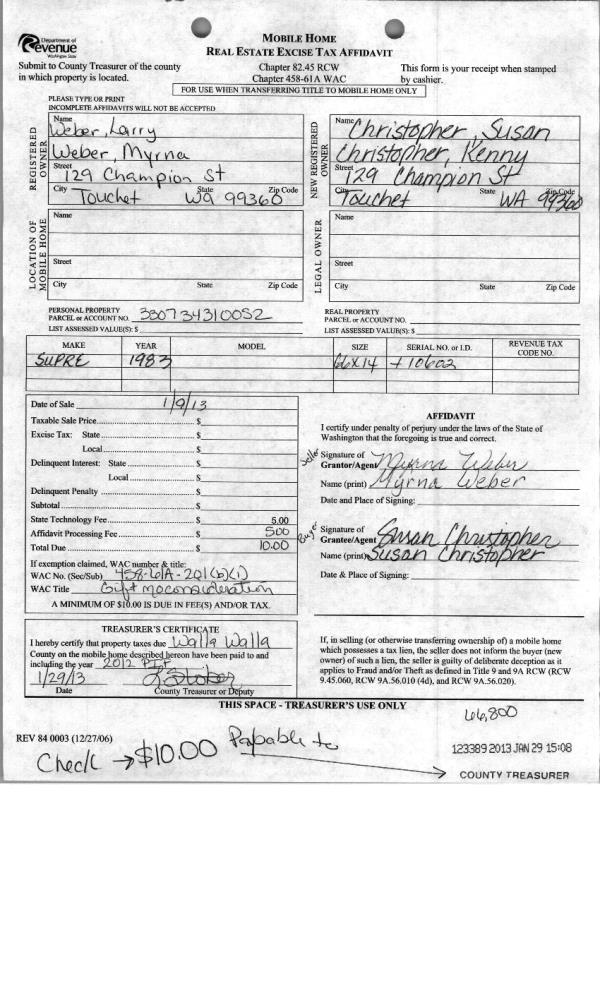 Department of
Revenue
Washington State
MOBILE HOME
REAL ESTATE EXCISE TAX AFFIDAVIT
Submit to County Treasurer of the county
in which property is located.
Chapter 82.45 RCW
Chapter 458-61A WAC
This form is your receipt when stamped
by cashier.
FOR USE WHEN TRANSFERRING TITLE TO MOBILE HOME ONLY
PLEASE TYPE OR PRINT
INCOMPLETE AFFIDAVITS WILL NOT BE ACCEPTED
REGISTERED OWNER
Name
Weber, Larry
Weber, Myrna
Street
129 Champion St
City State Zip Code
Touchet Wa 99360
NEW REGISTERED OWNER
Name
Christopher, Susan
Christopher, Kenny
Street
129 Champion St
City State Zip Code
Touchet WA 99360
LOCATION OF MOBILE HOME
Name
Street
City State Zip Code
LEGAL OWNER
Name
Street
City State Zip Code
PERSONAL PROPERTY
PARCEL or ACCOUNT NO. 330734310052
LIST ASSESSED VALUE(S): $
REAL PROPERTY
PARCEL or ACCOUNT NO.
LIST ASSESSED VALUE(S): $
MAKE YEAR MODEL SIZE SERIAL NO. or I.D. REVENUE TAX CODE NO.
SUPRE 1983 66x14 10602
Date of Sale 1/9/13
Taxable Sale Price $
Excise Tax: State $
Local $
Delinquent Interest: State $
Local $
Delinquent Penalty $
Subtotal $
State Technology Fee $ 5.00
Affidavit Processing Fee $ 5.00
Total Due $ 10.00
If exemption claimed, WAC number & title:
WAC No. (Sec/Sub) 458-61A-201(b)(1)
WAC Title Gift no consideration
A MINIMUM OF $10.00 IS DUE IN FEE(S) AND/OR TAX.
AFFIDAVIT
I certify under penalty of perjury under the laws of the State of
Washington that the foregoing is true and correct.
Seller Signature of
Grantor/Agent Myrna Weber
Name (print) Myrna Weber
Date and Place of Signing:
Buyer Signature of
Grantee/Agent Susan Christopher
Name (print) Susan Christopher
Date & Place of Signing:
TREASURER'S CERTIFICATE
I hereby certify that property taxes due Walla Walla
County on the mobile home described hereon have been paid to and
including the year 2012 PIF
1/29/13
Date County Treasurer or Deputy
If, in selling (or otherwise transferring ownership of) a mobile home
which possesses a tax lien, the seller does not inform the buyer (new
owner) of such a lien, the seller is guilty of deliberate deception as it
applies to Fraud and/or Theft as defined in Title 9 and 9A RCW (RCW
9.45.060, RCW 9A.56.010 (4d), and RCW 9A.56.020).
THIS SPACE - TREASURER'S USE ONLY
66,800
REV 84 0003 (12/27/06)
Check → $10.00 Payable to →
123389 2013 JAN 29 15:08
COUNTY TREASURER